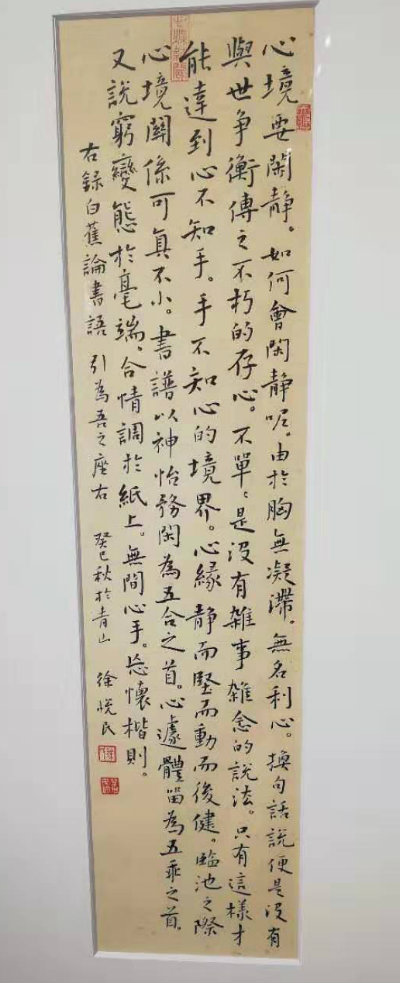 心境要閑靜。如何會閑靜呢。由於胸無凝滯。無名利心。換句話說便是沒有
與世爭衡傳之不朽的存心。不單單是沒有雜事雜念的說法。只有這樣才
能達到心不知手。手不知心的境界。心緣靜而堅而動而後健。臨池之際
心境關係可真不小。書譜以神怡務閑為五合之首。心遽體留為五乖之首。
又說窮變態於毫端。合情調於紙上。無間心手。忘懷楷則。
右錄白蕉論書語 引為吾之座右 癸巳秋於青山 徐悅民